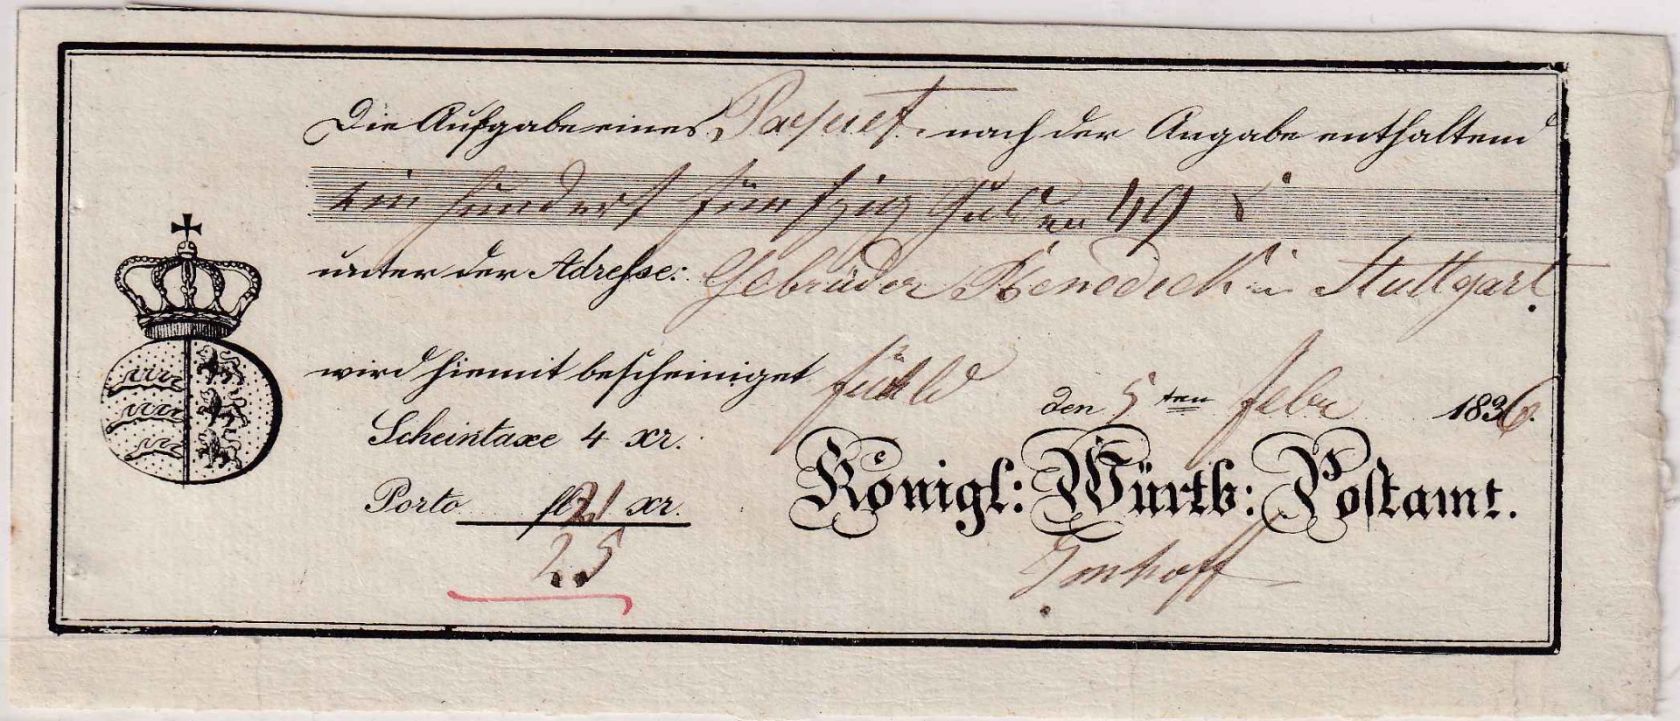 Die Aufgabe eines Paquet nach der Angabe enthaltend
ein hundert fünfzig Gulden 49
unter der Adresse: Gebrüder Benedict in Stuttgart.
wird hiemit bescheiniget den 5 ten Febr 1836.
Scheintaxe 4 xr.
Porto fl 21 xr.
25
Königl: Würtb: Postamt.
Imhoff